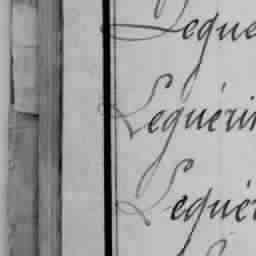 Leque
Leguérin
Lequér